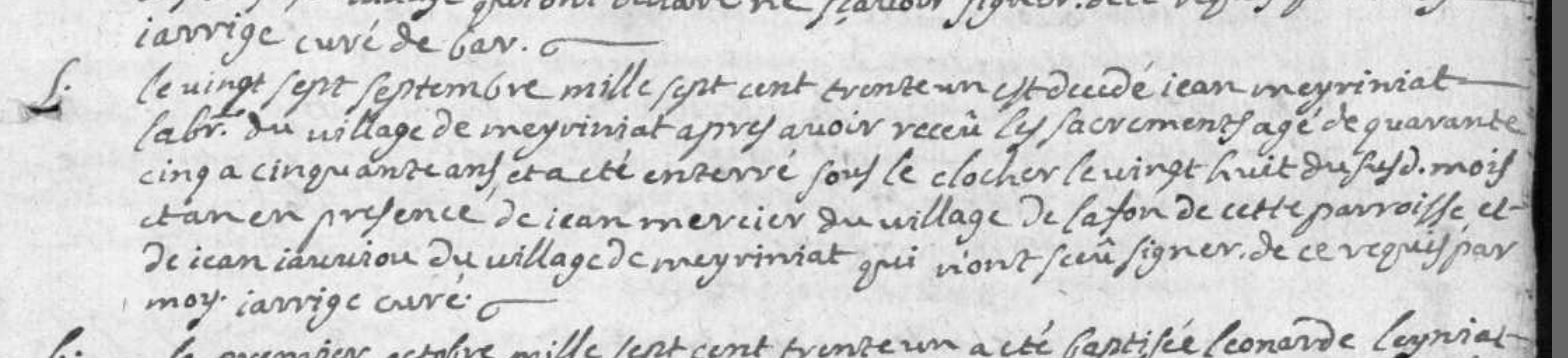 village qui ont declaré ne sçauoir signer. de ce requis
iarrige curé de bar.
S. le vingt sept septembre mille sept cent trente un est decedé iean meyriniat
labr. du uillage de meyriniat apres auoir receû les sacrements agé de quarante
cinq a cinquante ans, et a eté enterré sous le clocher le uingt huit du susd. mois
et an en presence de iean mercier du uillage de lafon de cette parroisse et
de iean iauuiou du uillage de meyriniat qui n'ont sceû signer. de ce requis par
moy. iarrige curé.
b. le premier octobre mille sept cent trente un a eté baptisée leonarde leyniat